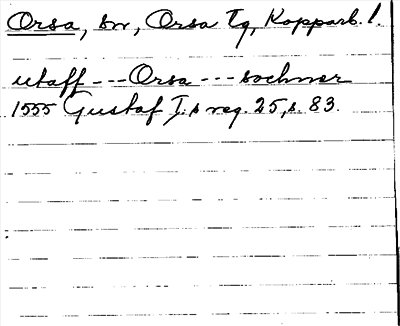 Orsa, sn, Orsa Tg, Kopparb. l.
utaff --- Orsa --- sochner
1555 Gustaf I.s reg. 25, s. 83.